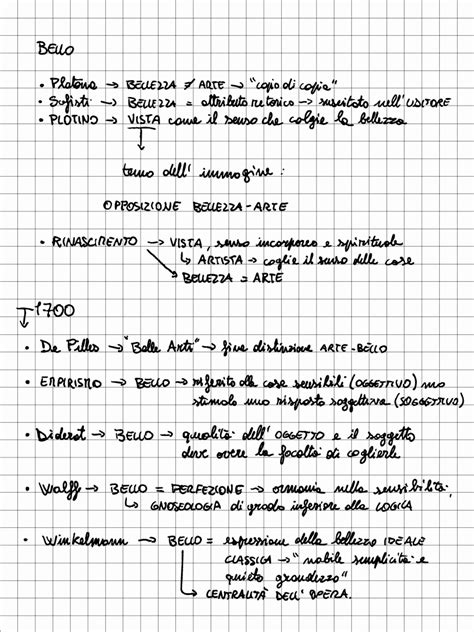 BELLO
• Platone → BELLEZZA ≠ ARTE → "copia di copia"
• Sofisti → BELLEZZA = attributo retorico → suscitato nell'UDITORE
• PLOTINO → VISTA come il senso che coglie la bellezza
tema dell'immagine :
OPPOSIZIONE BELLEZZA-ARTE
• RINASCIMENTO → VISTA, senso incorporeo e spirituale
↳ ARTISTA → coglie il senso delle cose
BELLEZZA = ARTE
1700
• De Pilles → "Belle Arti" → fine distinzione ARTE-BELLO
• EMPIRISMO → BELLO → riferito alle cose sensibili (OGGETTIVO) ma
stimola una risposta soggettiva (SOGGETTIVO)
• Diderot → BELLO → qualità dell'OGGETTO e il soggetto
deve avere la facoltà di coglierle
• Wolff → BELLO = PERFEZIONE → armonia nella sensibilità,
↳ GNOSEOLOGIA di grado inferiore alla LOGICA
• Winkelmann → BELLO = espressione della bellezza IDEALE
CLASSICA → "nobile semplicità e
quieta grandezza"
CENTRALITÀ DELL'OPERA.